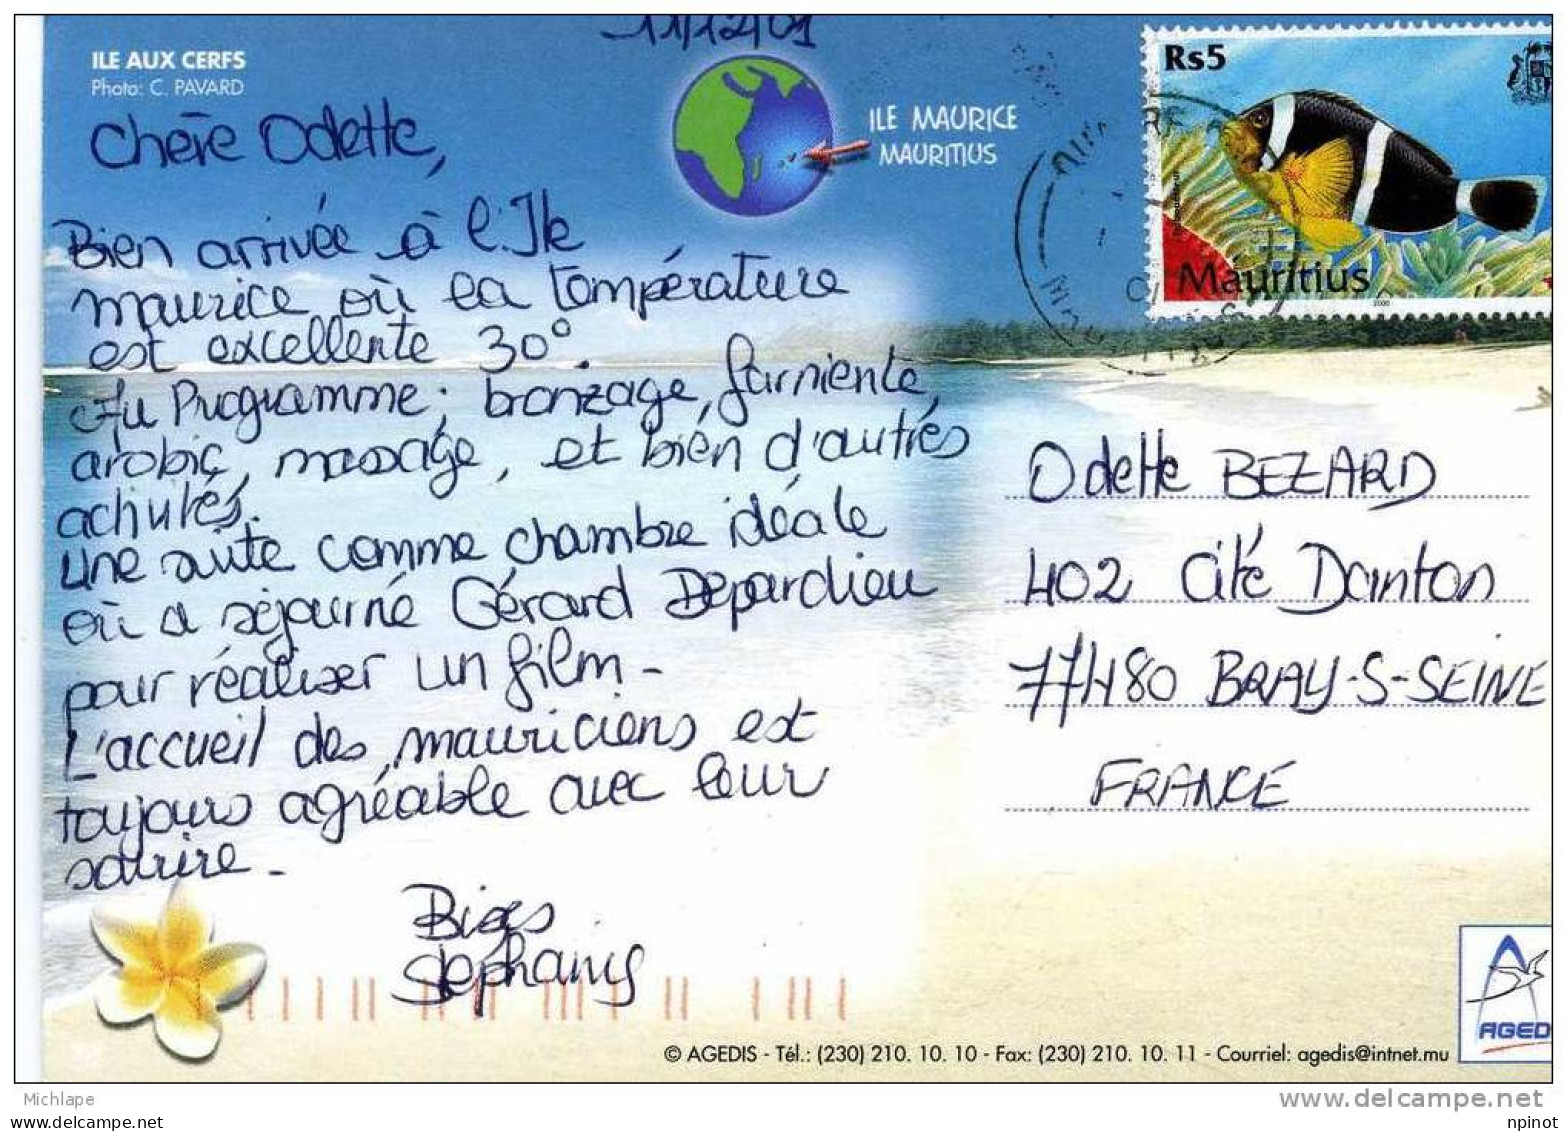 11/12/01
ILE AUX CERFS
Photo: C. PAVARD
Rs5
ILE MAURICE
MAURITIUS
Mauritius
2000
Chère Odette,
Bien arrivée à l'Ile
maurice où la température
est excellente 30°.
Au Programme; bronzage, farniente,
arobic, massage, et bien d'autres
activités.
une suite comme chambre idéale
où a séjourné Gérard Depardieu
pour réaliser un film -
L'accueil des mauriciens est
toujours agréable avec leur
sourire -
Bises
Stéphany
Odette BEZARD
402 Cité Danton
77480 BRAY-S-SEINE
FRANCE
AGED
© AGEDIS - Tél.: (230) 210. 10. 10 - Fax: (230) 210. 10. 11 - Courriel: agedis@intnet.mu
Michlape
www.delcampe.net
npinot